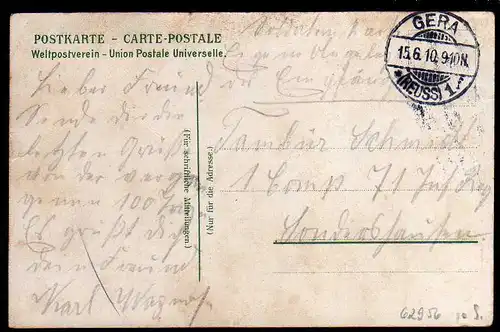 POSTKARTE - CARTE-POSTALE
Weltpostverein - Union Postale Universelle.
Soldaten
Eigen
GERA
15.6.10.9-10N.
*(REUSS)1*
Lieber Freund
Sende dir die
letzten Grüße
von der
100
Es grüßt dich
dein Freund
Karl
(Für schriftliche Mitteilungen.)
(Nur für die Adresse.)
Tambur Schmidt
1 Comp 71 Inf Reg
Sondershausen
62956